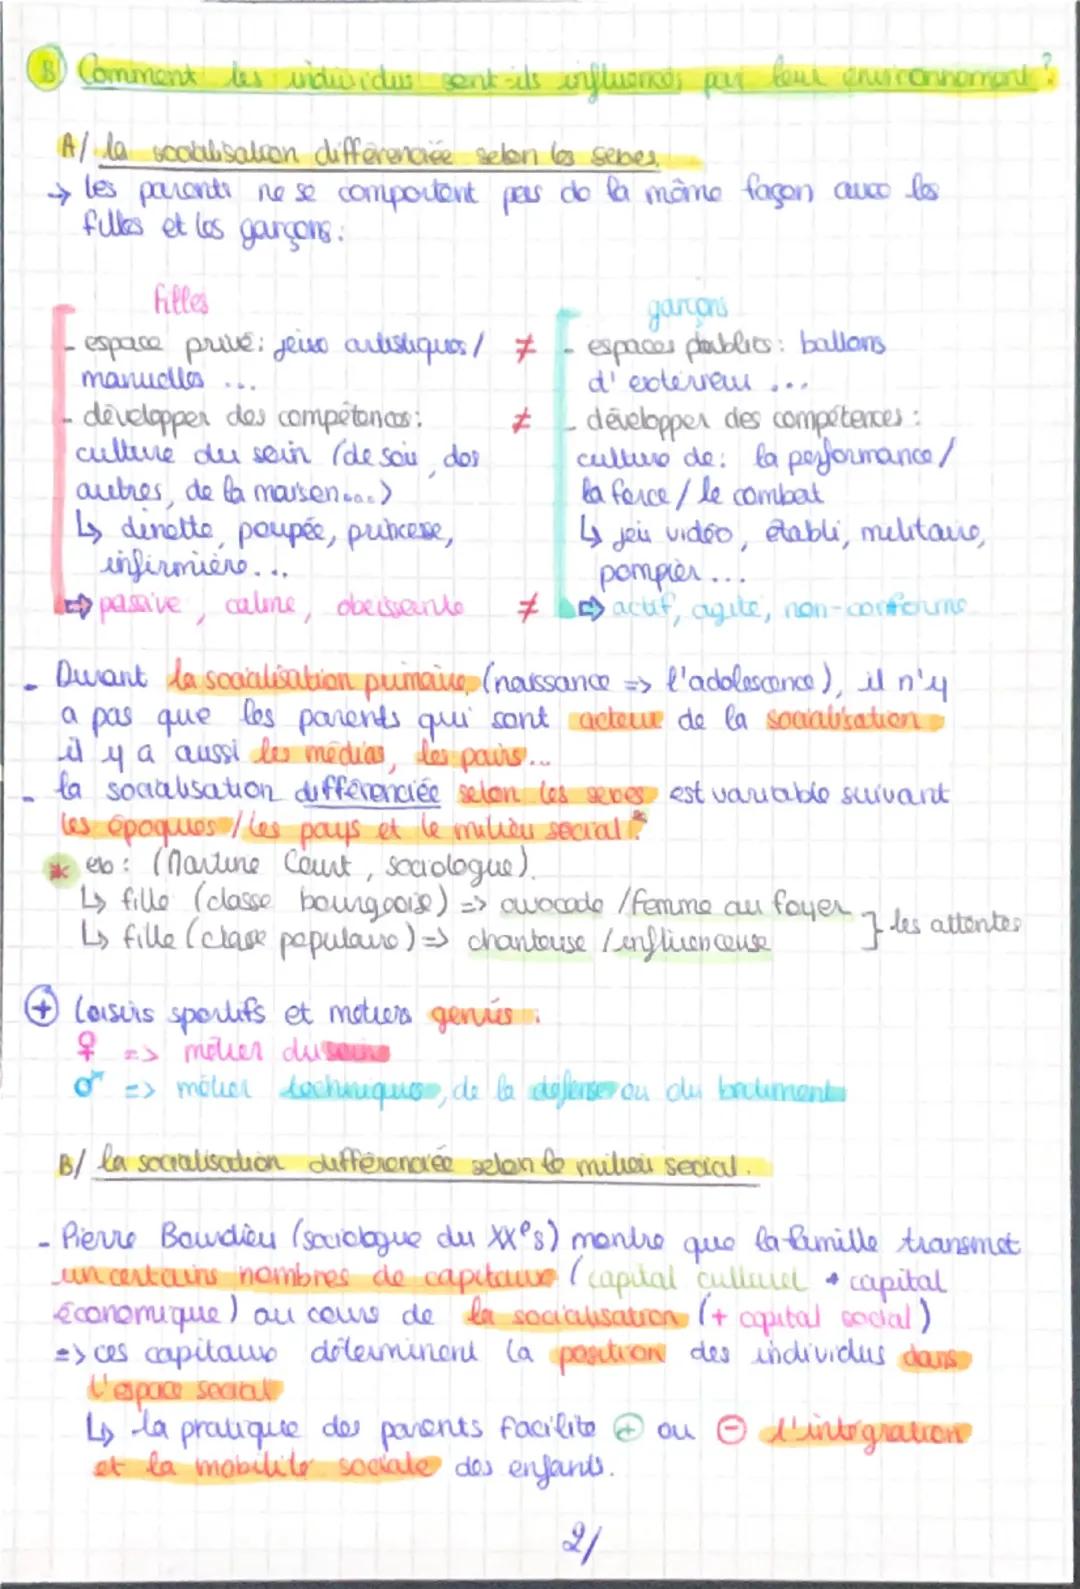 B Comment les individus sont-ils influencés par leur environnement ?
A/ la socialisation différenciée selon les sexes.
→ les parents ne se comportent pas de la même façon avec les
filles et les garçons :
filles
- espace privé : jeux artistiques /
manuelles ...
- développer des compétences :
culture du soin (de soi, des
autres, de la maison...)
↳ dinette, poupée, princesse,
infirmière...
⇨ passive, calme, obeissante
≠
≠
≠
garçons
- espaces publics : ballons
d'exterieur ...
- développer des compétences :
culture de : la performance /
la force / le combat
↳ jeu vidéo, établi, militaire,
pompier ...
⇨ actif, agité, non-conforme
- Durant la socialisation primaire, (naissance => l'adolescence), il n'y
a pas que les parents qui sont acteur de la socialisation
il y a aussi les médias, les pairs...
- la socialisation différenciée selon les sexes est variable suivant
les époques / les pays et le milieu social.*
* ex : (Martine Court, sociologue).
↳ fille (classe bourgeoise) => avocade / femme au foyer
↳ fille (classe populaire) => chanteuse / influenceuse
} les attentes
+ loisirs sportifs et metiers genrés :
♀ => métier du soins
♂ => métier techniques, de la défense ou du batiment
B/ la socialisation différenciée selon le milieu social.
- Pierre Bourdieu (sociologue du XXe s) montre que la famille transmet
un certains nombres de capitaux (capital culturel + capital
économique) au cours de la socialisation (+ capital social)
=> ces capitaux déterminent la position des individus dans
l'espace social
↳ la pratique des parents facilite + ou - l'intégration
et la mobilité sociale des enfants.
2/